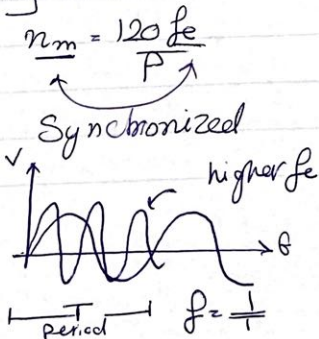 n_m = 120 fe / P
Synchronized
V
higher fe
t
T
period
f = 1/T